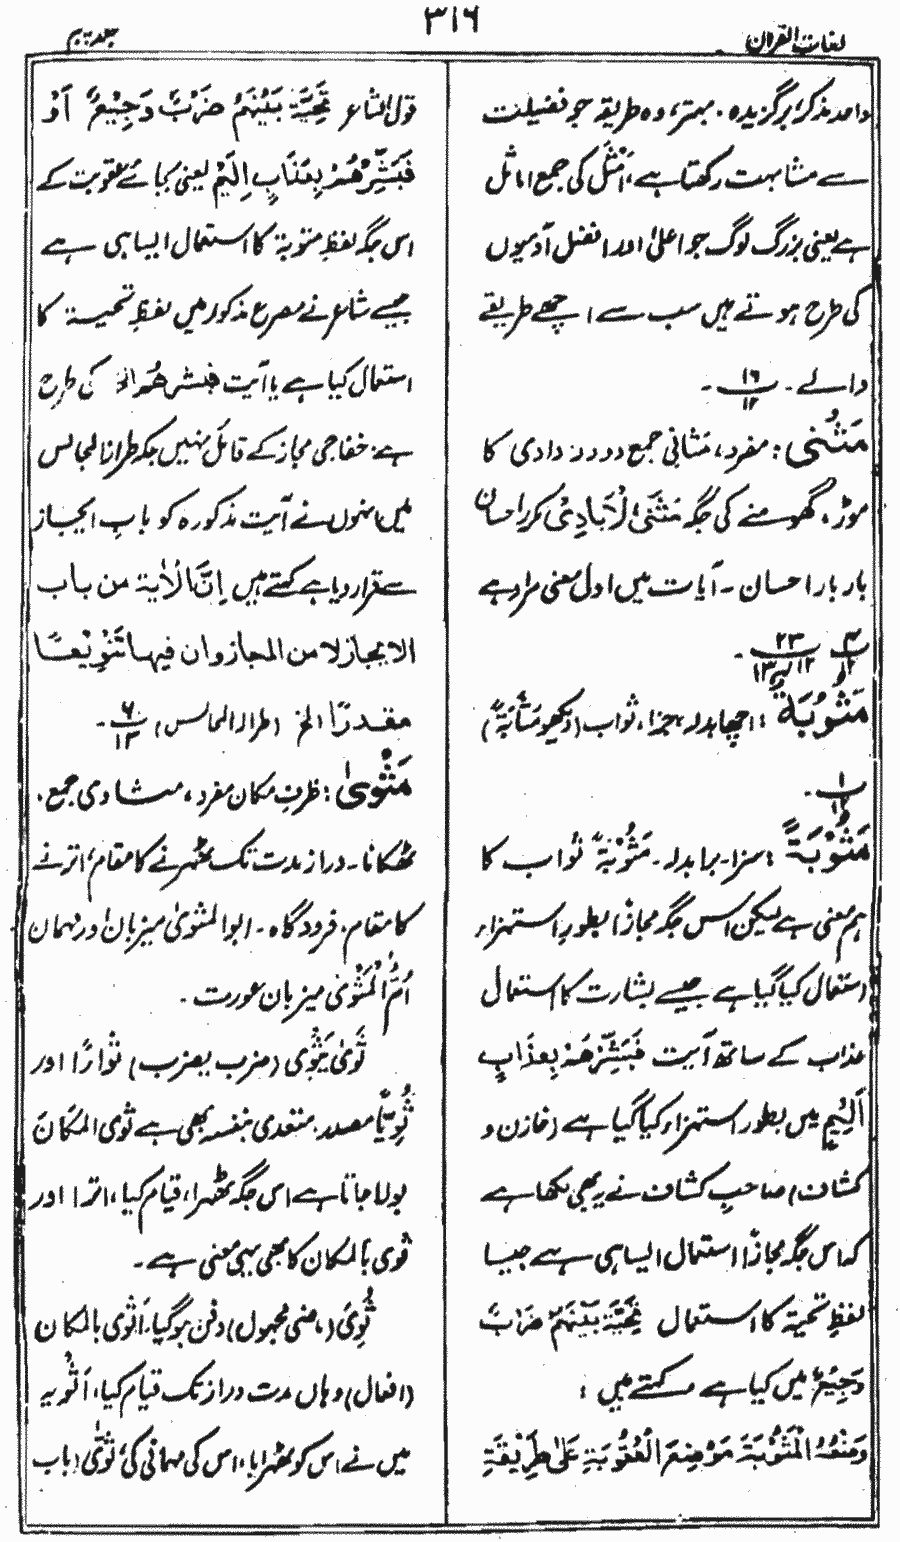 لغات القرآن
۳۱۶
جلد پنجم
واحد مذکر، برگزیدہ۔ بہتر، وہ طریقہ جو فضیلت
سے مشابہت رکھتا ہے، اَمْثَل کی جمع اماثل
ہے یعنی بزرگ لوگ جو اعلیٰ اور افضل آدمیوں
کی طرح ہوتے ہیں سب سے اچھے طریقے
والے ۔ ۱۶/۱۲ ۔
مَثْنٰی : مفرد، مَثَانِی جمع دو دو۔ وادی کا
موڑ، گھومنے کی جگہ مَثْنَی الْاَیَادِیْ مکرر احسان
بار بار احسان ۔ آیات میں اول معنی مراد ہے
۴/۱۲ و ۲۳/۱۲ ۱۳ ۔
مَثُوْبَةٌ : اچھا بدلہ، جزا، ثواب (دیکھو مَثَابَةً)
۱/۱۲ ۔
مَثُوْبَةً : سزا۔ برا بدلہ ۔ مَثُوْبَةٌ ثواب کا
ہم معنی ہے لیکن اس جگہ مجازًا بطور استہزاء
استعمال کیا گیا ہے جیسے بشارت کا استعمال
عذاب کے ساتھ آیت فَبَشِّرْهُمْ بِعَذَابٍ
اَلِیْمٍ میں بطور استہزاء کیا گیا ہے (خازن و
کشاف) صاحب کشاف نے یہ بھی لکھا ہے
کہ اس جگہ مجازًا استعمال ایسا ہی ہے جیسا
لفظ تحیۃ کا استعمال تَحِيَّةُ بَيْنِهِمْ ضَرْبٌ
وَجِيْعٌ میں کیا ہے کہتے ہیں :
وَمِنْهُ الْمَثُوْبَةُ مَوْضِعَ الْعُقُوْبَةِ عَلٰى طَرِيْقَةِ
قول الشاعر تَحِيَّةُ بَيْنِهِمْ ضَرْبٌ وَجِيْعٌ اَوْ
فَبَشِّرْهُمْ بِعَذَابٍ اَلِيْمٍ یعنی بجائے عقوبت کے
اس جگہ لفظ مثوبۃ کا استعمال ایسا ہی ہے
جیسے شاعر نے مصرع مذکور میں لفظ تحیۃ کا
استعمال کیا ہے یا آیت فبشرھم الخ کی طرح
ہے، خفاجی مجاز کے قائل نہیں جگہ طراز المجالس
میں انہوں نے آیت مذکورہ کو باب ایجاز
سے قرار دیا ہے کہتے ہیں اِنَّ الْاٰیة من باب
الایجاز لا من المجاز وان فیہا تَنْوِیْعًا
مقدرًا الخ (طراز المجالس) ۶/۱۳ ۔
مَثْوٰی : ظرف مکان مفرد، مثاوی جمع،
ٹھکانا۔ دراز مدت تک ٹھہرنے کا مقام، اترنے
کا مقام، فرودگاہ ۔ ابو المثویٰ میزبان و مہمان
اُمُّ الْمَثْوٰی میزبان عورت ۔
ثَوٰی یَثْوِی (ضرب یضرب) ثَوَاءً اور
ثُوِیًّا مصدر۔ متعدی بنفسہ بھی ہے ثوی المکان
بولا جاتا ہے اس جگہ ٹھہرا، قیام کیا، اترا اور
ثوی بالمکان کا بھی یہی معنی ہے ۔
ثُوِیَ (ماضی مجہول) دفن ہو گیا، اَثْوٰی بالمکان
(افعال) وہاں مدت دراز تک قیام کیا، اَثْوَیْتُہ
میں نے اس کو ٹھہرایا، اس کی مہمانی کی ثَوّٰی (باب